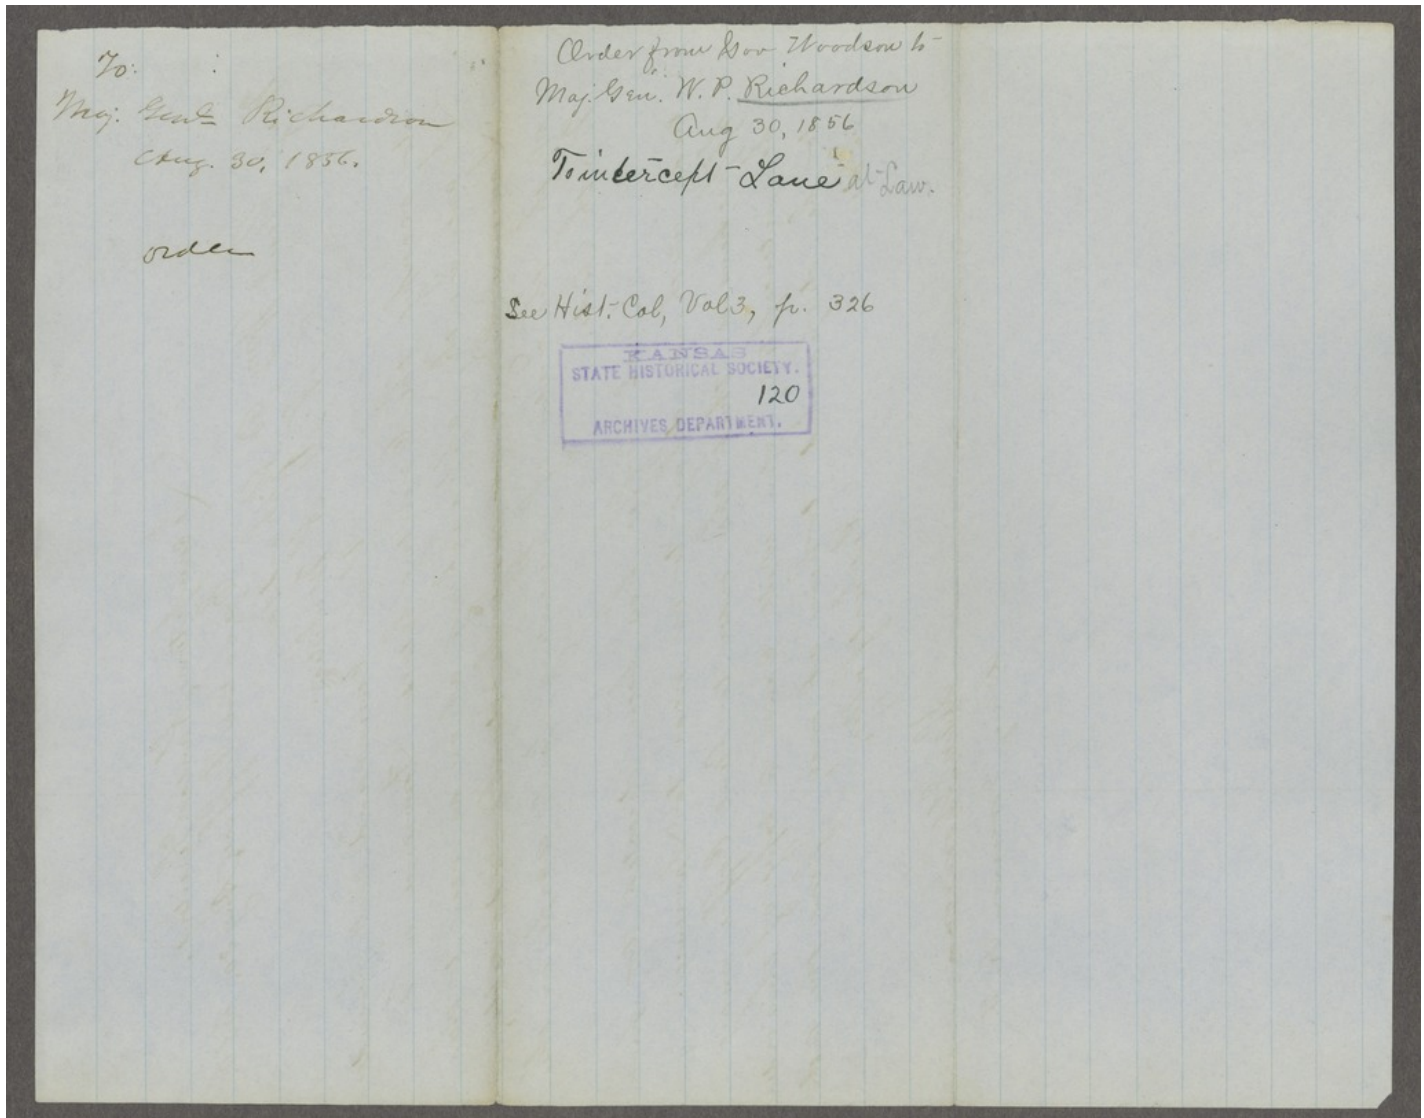 To:
Maj. Genl. Richardson
Aug. 30, 1856.
order
Order from Gov Woodson to
Maj. Gen. W. P. Richardson
Aug 30, 1856
To intercept Lane at Law.
See Hist. Col, Vol 3, p. 326
KANSAS
STATE HISTORICAL SOCIETY.
120
ARCHIVES DEPARTMENT.